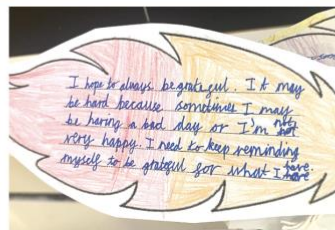 I hope to always be grateful. It may
be hard because sometimes I may
be having a bad day or I'm not
very happy. I need to keep reminding
myself to be grateful for what I have.